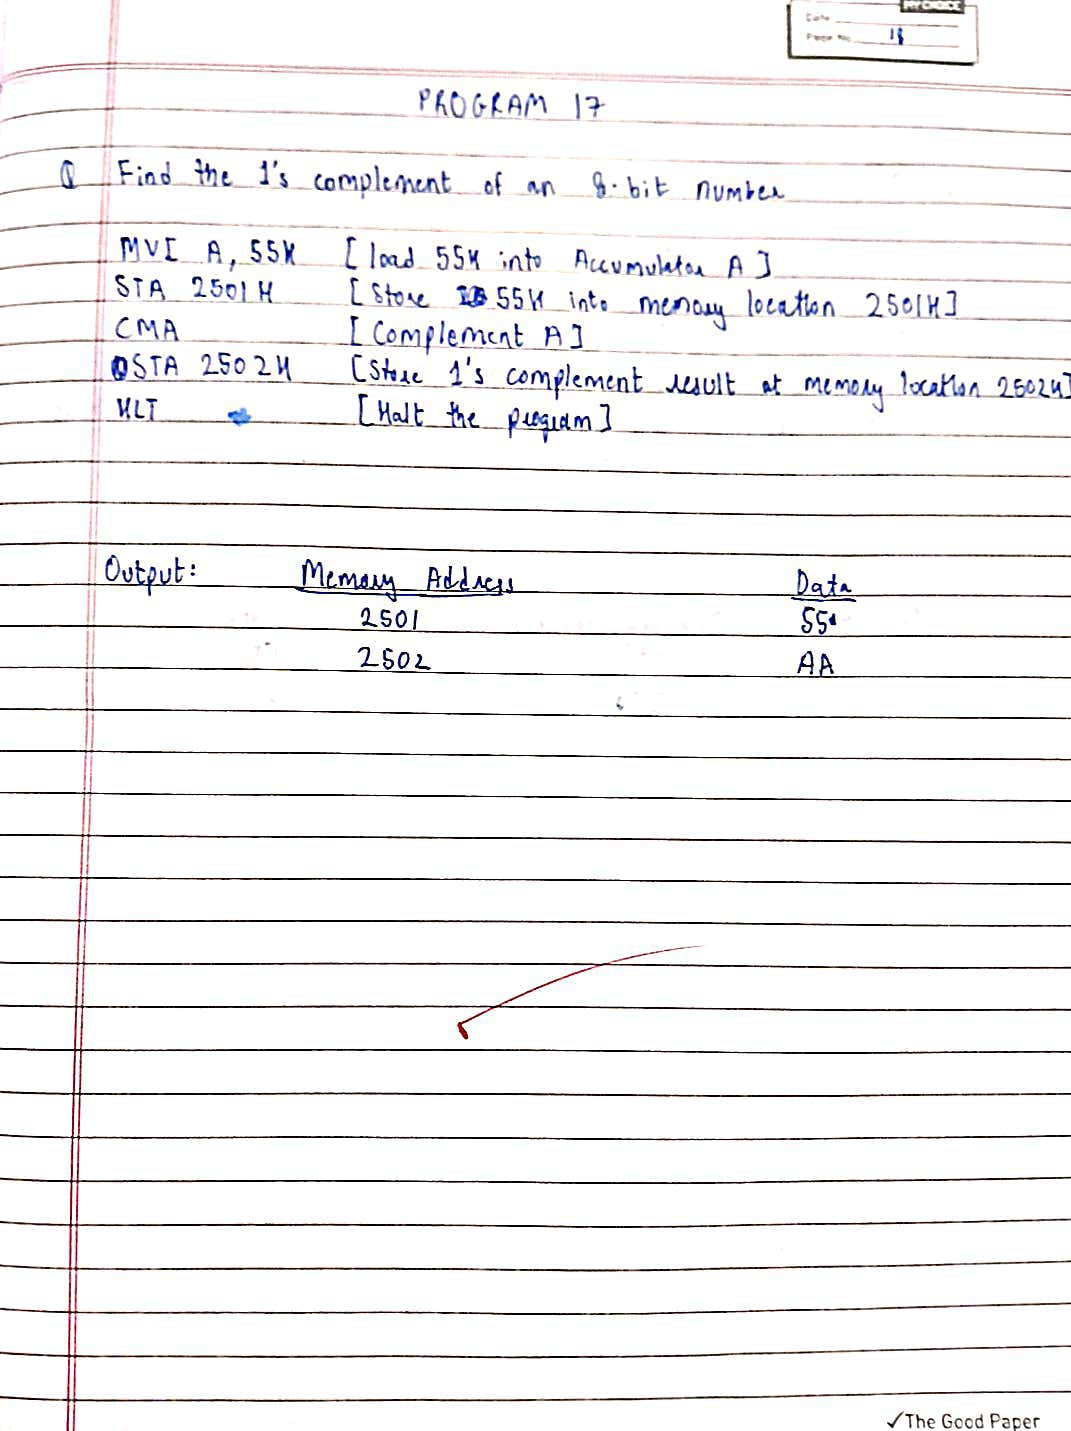 MY CHOICE
Date
Page No. 18
PROGRAM 17
Q Find the 1's complement of an 8-bit number
MVI A, 55H [load 55H into Accumulator A]
STA 2501H [Store 55H into memory location 2501H]
CMA [Complement A]
STA 2502H [Store 1's complement result at memory location 2502H]
HLT [Halt the program]
Output: Memory Address Data
2501 55
2502 AA
✓The Good Paper